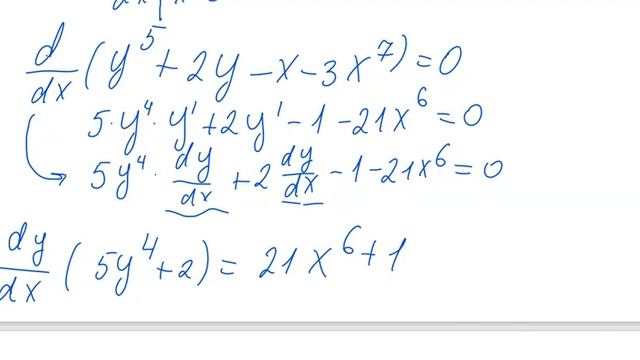 d/dx (y⁵ + 2y − x − 3x⁷) = 0
5·y⁴·y' + 2y' − 1 − 21x⁶ = 0
5y⁴ · dy/dx + 2 dy/dx − 1 − 21x⁶ = 0
dy/dx (5y⁴ + 2) = 21x⁶ + 1